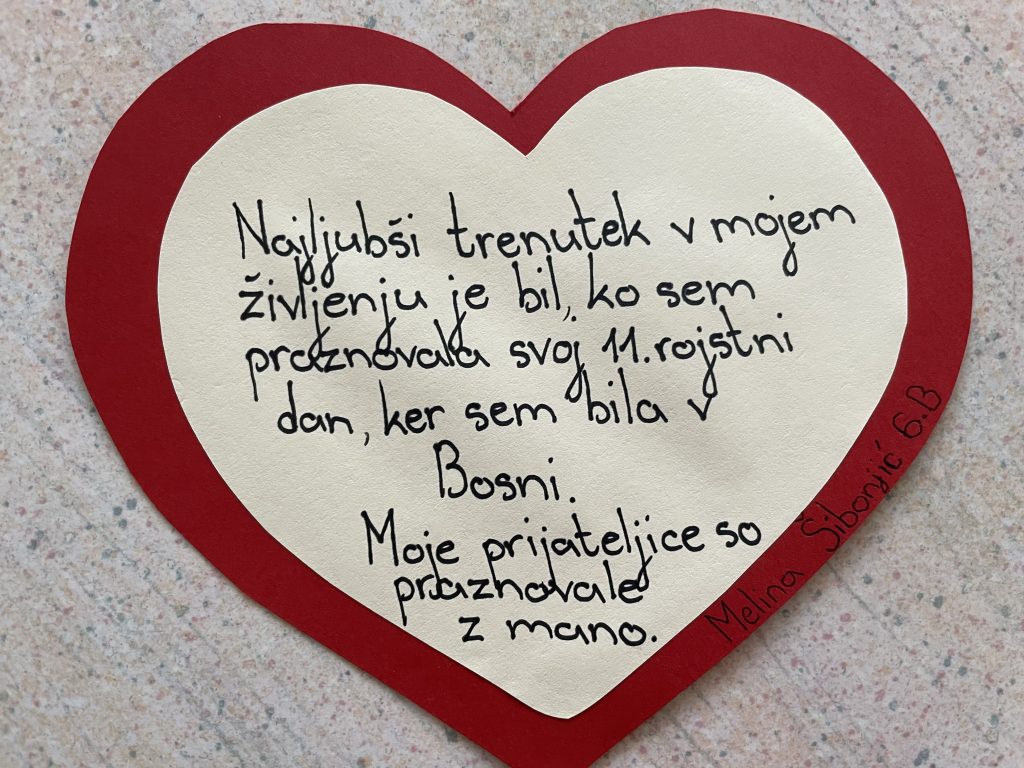 Najljubši trenutek v mojem
življenju je bil, ko sem
praznovala svoj 11. rojstni
dan, ker sem bila v
Bosni.
Moje prijateljice so
praznovale
z mano.
Melina Šibonjić 6.B